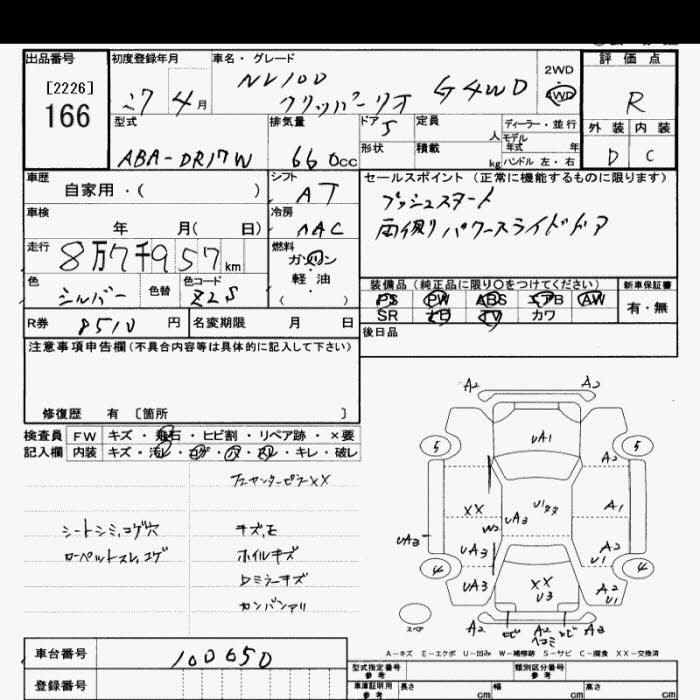 出品番号
[2226]
166
初度登録年月
27 4月
車名・グレード
NV100
クリッパーリオ
G 4WD
2WD
4WD
評価点
R
外装 内装
D C
型式
ABA-DR17W
排気量
660cc
ドア 5
形状
定員
人
積載
kg
ディーラー・並行
モデル年式 年
ハンドル 左・右
車歴
自家用・( )
シフト
AT
車検
年 月( 日)
冷房
AAC
走行
8万7千957km
燃料
ガソリン
軽油
( )
色
シルバー
色替
色コード
Z2S
R券 8510円
名変期限 月 日
セールスポイント(正常に機能するものに限ります)
プッシュスタート
両側パワースライドドア
装備品(純正品に限り〇をつけてください)
PS PW ABS エアB AW
SR ナビ TV カワ
新車保証書
有・無
後日品
注意事項申告欄(不具合内容等は具体的に記入して下さい)
修復歴 有 〔箇所 〕
検査員記入欄
FW キズ・飛石・ヒビ割・リペア跡・×要
内装 キズ・汚レ・コゲ・穴・スレ・キレ・破レ
シートシミ,コゲ穴
キズ,モ
ホイルキズ
Dミラーキズ
カンバンアリ
A2 A2
5 UA1 5
A2
XX UA3 A1
UA3 W2
UA3 A2
U1
4 4
UA3 XX A2
U3 U1
スペア
A2 A2 A3
ヘコミ
A-キズ E-エクボ U-凹み W-補修跡 S-サビ C-腐食 XX-交換済
車台番号
100650
登録番号
型式指定番号
参考
類別区分番号
参考
車庫証明用
参考
長さ cm
幅 cm
高さ cm